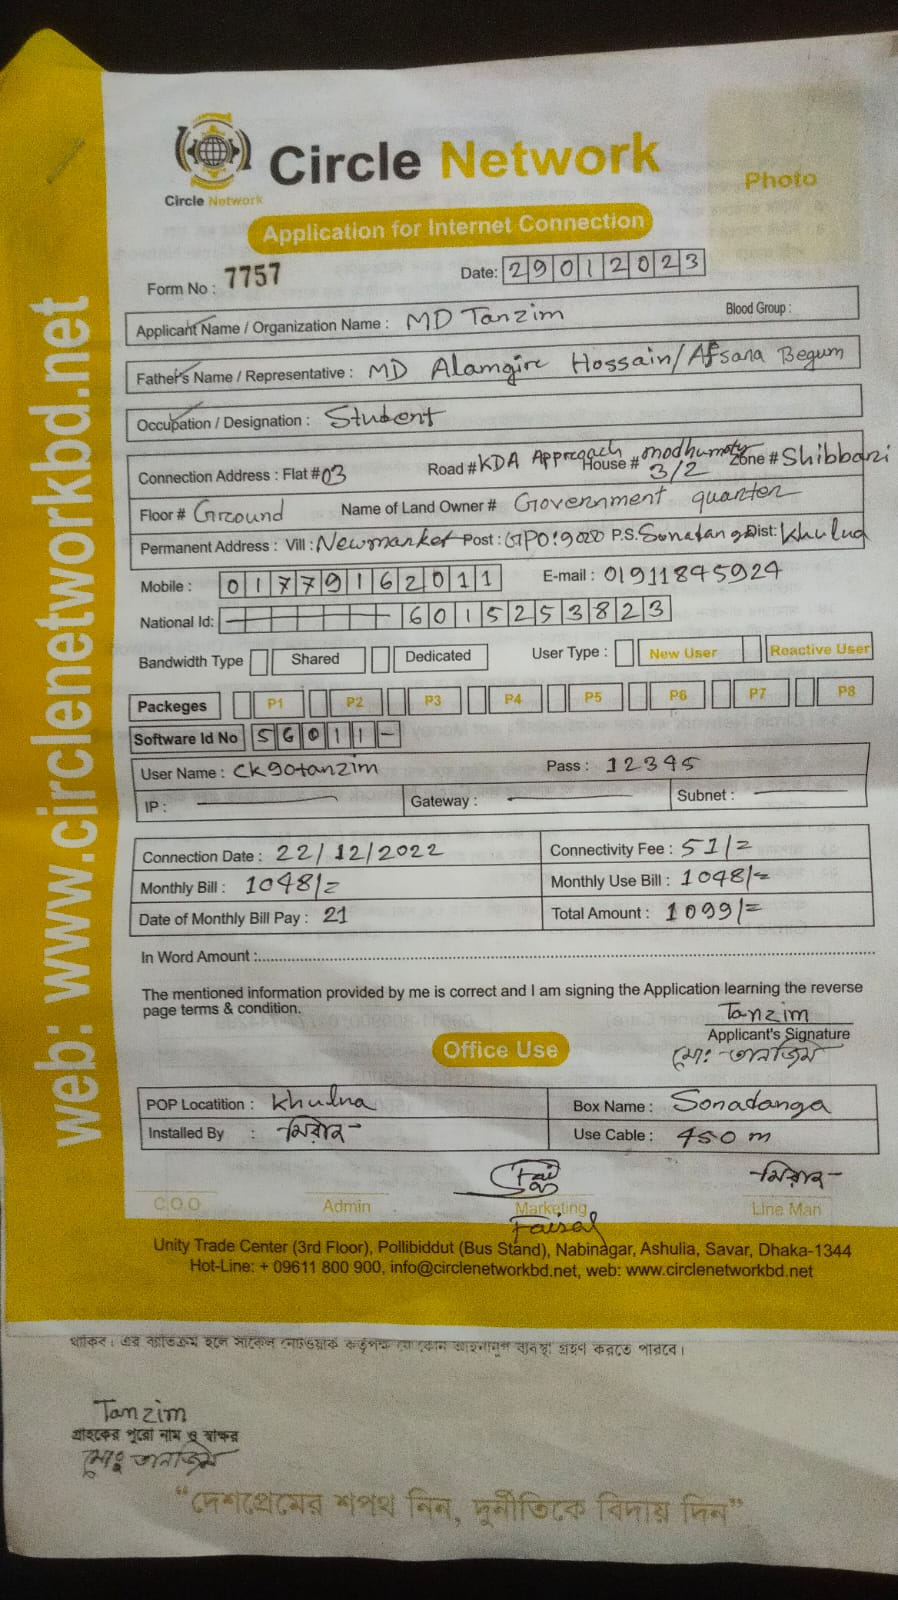 web: www.circlenetworkbd.net
Circle Network
Circle Network
Photo
Application for Internet Connection
Form No : 7757
Date: 29012023
Applicant Name / Organization Name : MD Tanzim Blood Group :
Father's Name / Representative : MD Alamgirc Hossain/Afsana Begum
Occupation / Designation : Student
Connection Address : Flat #03 Road #KDA Approach House # modhumoty 3/2 Zone #Shibbari
Floor # Grcound Name of Land Owner # Government quarter
Permanent Address : Vill : Newmarket Post : GPO:9000 P.S. Sonadanga Dist: Khulna
Mobile : 01779162011 E-mail : 01911845924
National Id: 6015253823
Bandwidth Type Shared Dedicated User Type : New User Reactive User
Packeges P1 P2 P3 P4 P5 P6 P7 P8
Software Id No 56011-
User Name : ck90tanzim Pass : 12345
IP : Gateway : Subnet :
Connection Date : 22/12/2022 Connectivity Fee : 51/=
Monthly Bill : 1048/= Monthly Use Bill : 1048/=
Date of Monthly Bill Pay : 21 Total Amount : 1099/=
In Word Amount :
The mentioned information provided by me is correct and I am signing the Application learning the reverse
page terms & condition.
Tanzim
Applicant's Signature
মোঃ তানজিম
Office Use
POP Locatition : Khulna Box Name : Sonadanga
Installed By : মিরাজ Use Cable : 450 m
Faisal
C.O.O Admin Marketing Line Man
Unity Trade Center (3rd Floor), Pollibiddut (Bus Stand), Nabinagar, Ashulia, Savar, Dhaka-1344
Hot-Line: + 09611 800 900, info@circlenetworkbd.net, web: www.circlenetworkbd.net
থাকিব। এর ব্যতিক্রম হলে সার্কেল নেটওয়ার্ক কর্তৃপক্ষ যে কোন আইনানুগ ব্যবস্থা গ্রহণ করতে পারবে।
Tanzim
গ্রাহকের পুরো নাম ও স্বাক্ষর
মোঃ তানজিম
“দেশপ্রেমের শপথ নিন, দুর্নীতিকে বিদায় দিন”